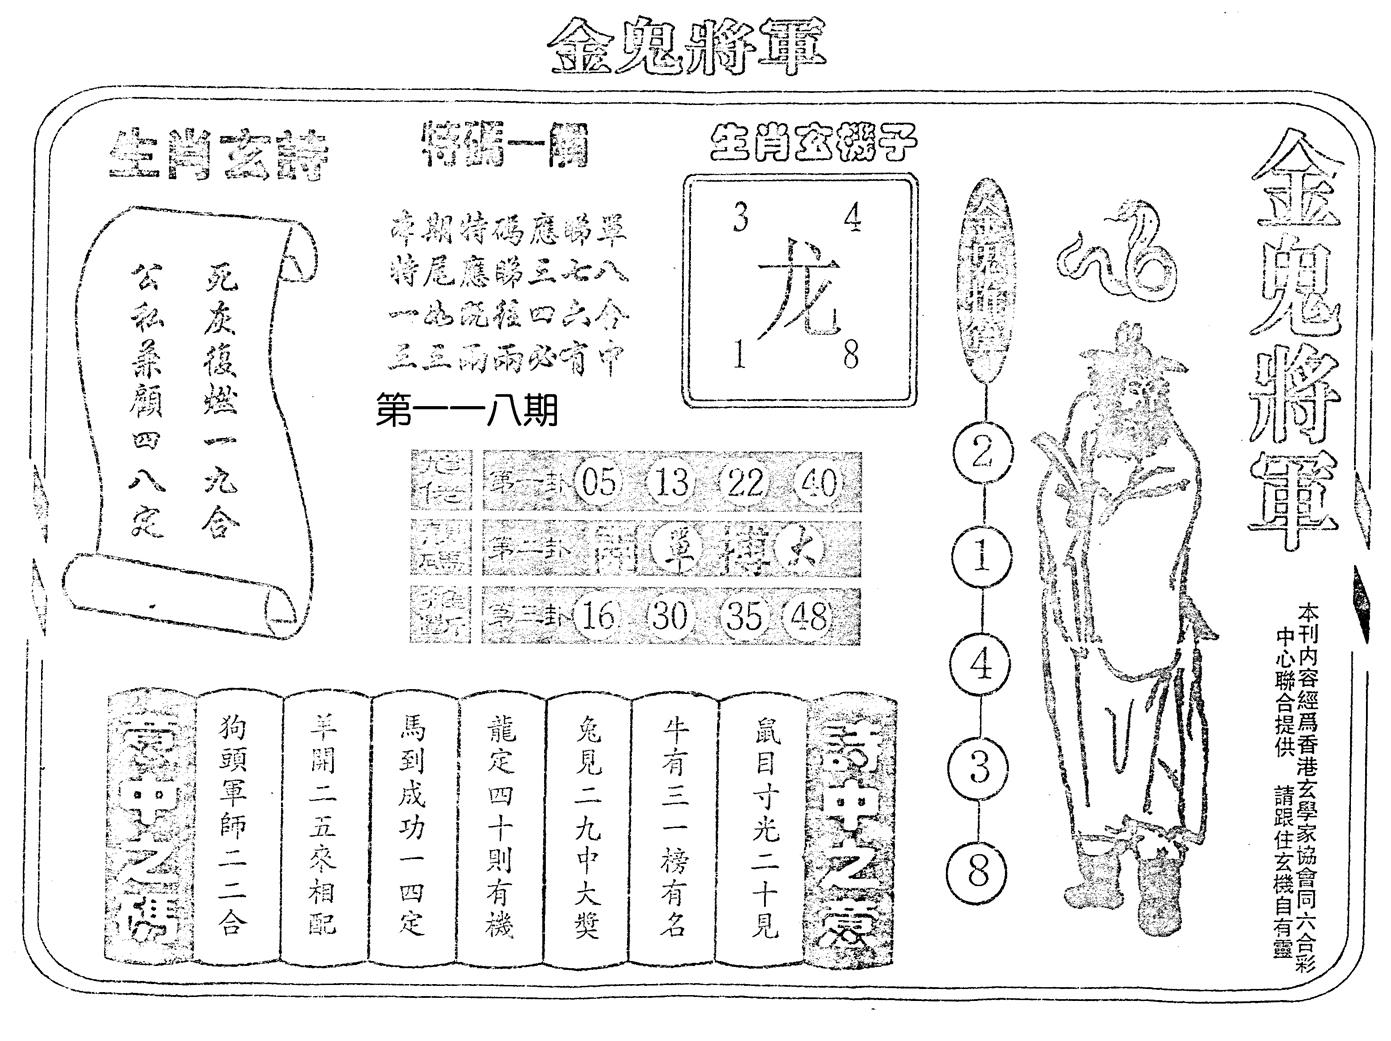 金鬼將軍
生肖玄詩
死灰復燃一九合
公私兼顧四八定
特碼一欄
本期特碼應睇單
特尾應睇三七八
一如既往四六合
三三兩兩必有中
第一一八期
生肖玄機子
3 4
龙
1 8
第一卦 05 13 22 40
第二卦 開 單 博 大
第三卦 16 30 35 48
金鬼神算
2
1
4
3
8
金鬼將軍
本刊内容經爲香港玄學家協會同六合彩
中心聯合提供 請跟住玄機自有靈
詩中之意
鼠目寸光二十見
牛有三一榜有名
兔見二九中大獎
龍定四十則有機
馬到成功一四定
羊開二五來相配
狗頭軍師二二合
意中之碼